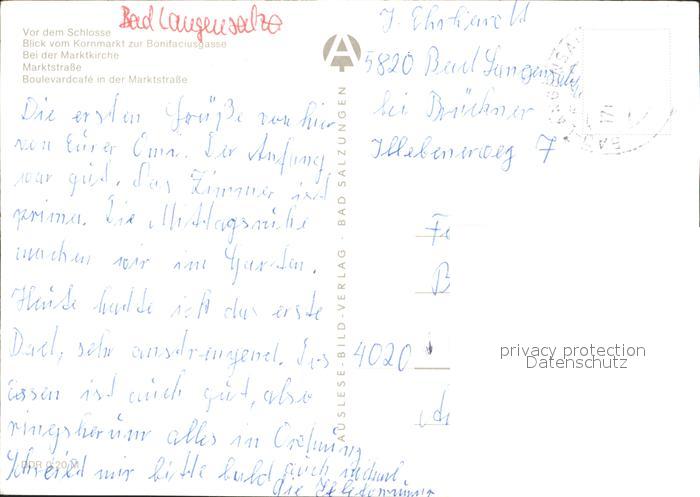 Bad Langensalza
Vor dem Schlosse
Blick vom Kornmarkt zur Bonifaciusgasse
Bei der Marktkirche
Marktstraße
Boulevardcafé in der Marktstraße
Die ersten Grüße von hier
von Eurer Omi. Der Anfang
war gut. Das Zimmer ist
prima. Die Mittagsruhe
machen wir im Garten.
Heute hatte ich das erste
Bad, sehr anstrengend. Das
Essen ist auch gut, also
ringsherum alles in Ordnung
Schreibt mir bitte bald auch mal
die
DDR 0,20 M
AUSLESE-BILD-VERLAG · BAD SALZUNGEN
J.
5820 Bad Langensalza
bei Brückner
Illebenerweg 7
Fe
B
4020
privacy protection
Datenschutz